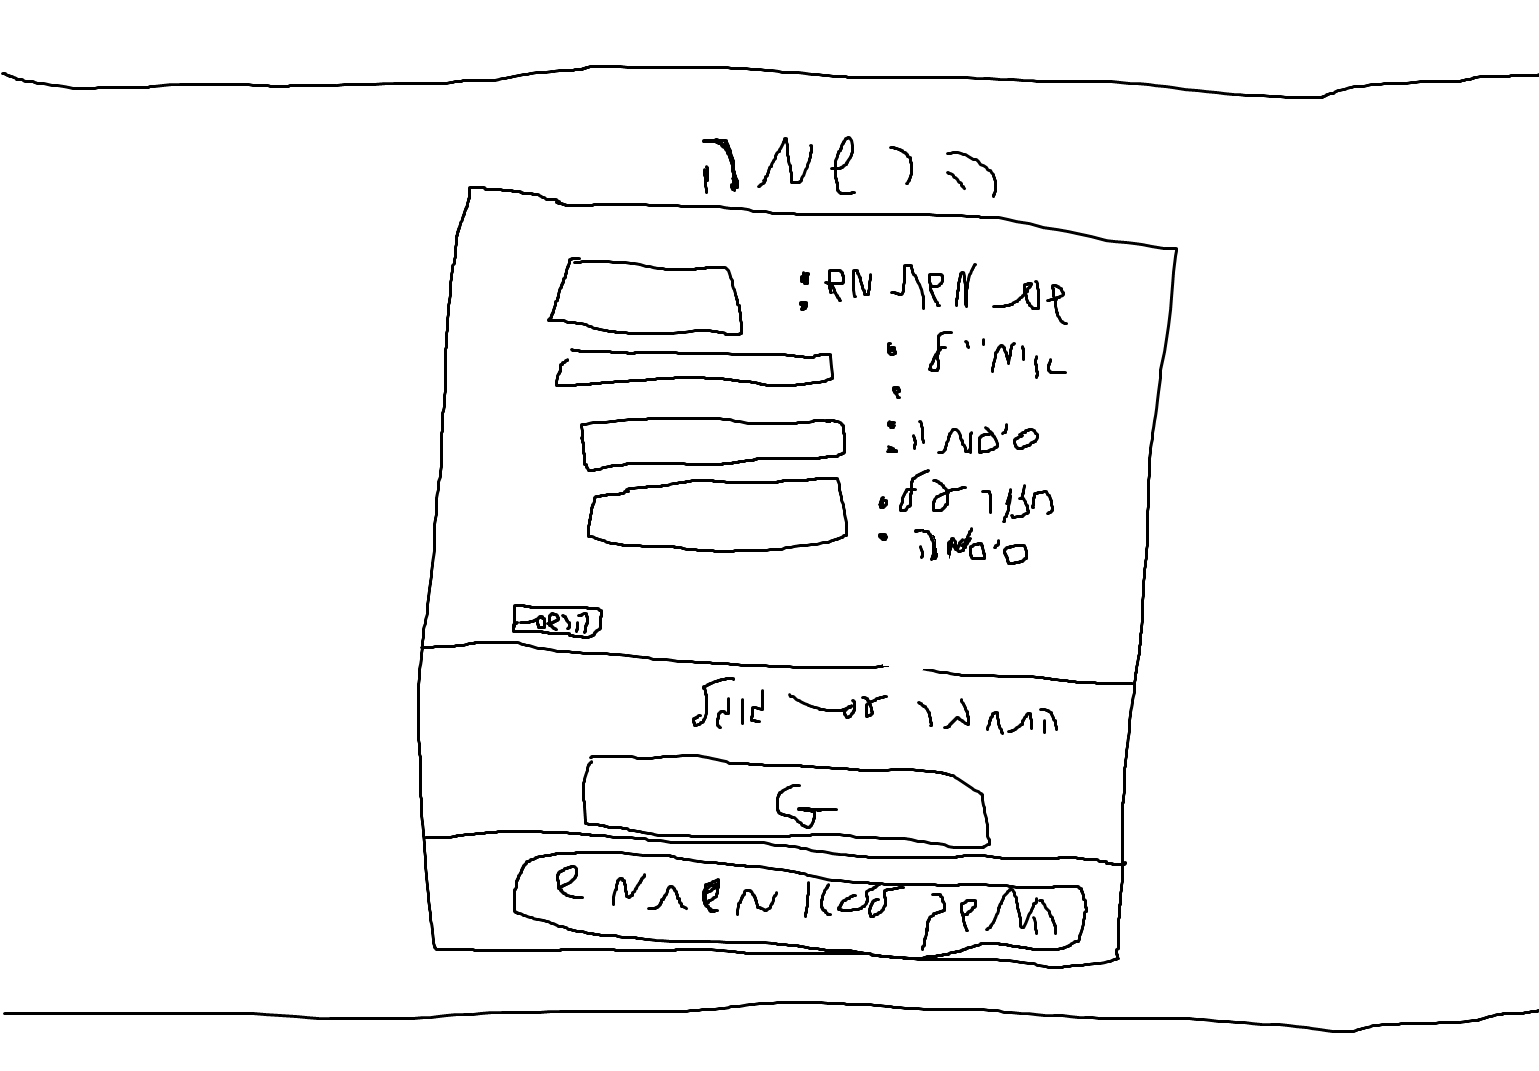 הרשמה
שם משתמש:
אימייל:
סיסמה:
חזור על:
סיסמה
הרשם
התחבר עם גוגל
G
המשך ללא משתמש